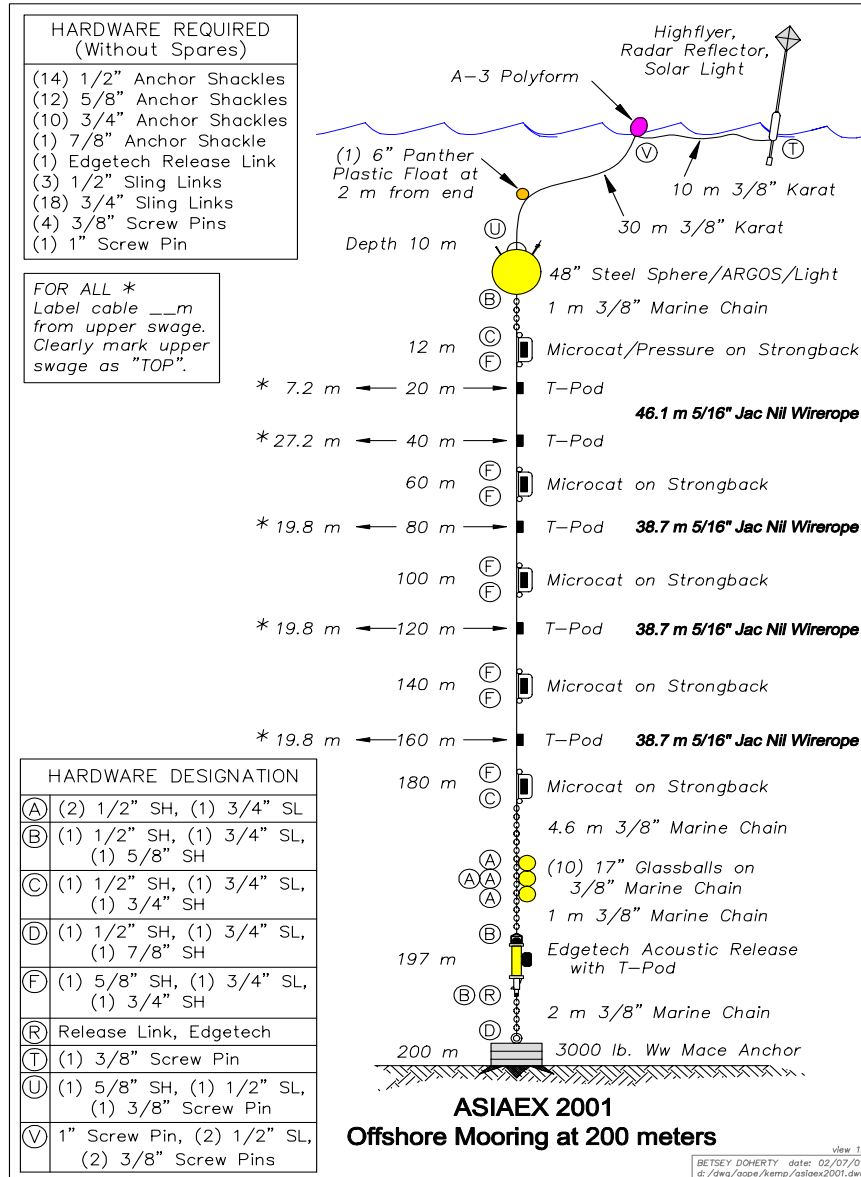 HARDWARE REQUIRED
(Without Spares)
(14) 1/2" Anchor Shackles
(12) 5/8" Anchor Shackles
(10) 3/4" Anchor Shackles
(1) 7/8" Anchor Shackle
(1) Edgetech Release Link
(3) 1/2" Sling Links
(18) 3/4" Sling Links
(4) 3/8" Screw Pins
(1) 1" Screw Pin
FOR ALL *
Label cable __m
from upper swage.
Clearly mark upper
swage as "TOP".
Highflyer,
Radar Reflector,
Solar Light
A-3 Polyform
V
T
(1) 6" Panther
Plastic Float at
2 m from end
10 m 3/8" Karat
30 m 3/8" Karat
U
Depth 10 m
48" Steel Sphere/ARGOS/Light
B
1 m 3/8" Marine Chain
C
12 m
Microcat/Pressure on Strongback
F
* 7.2 m 20 m T-Pod
46.1 m 5/16" Jac Nil Wirerope
* 27.2 m 40 m T-Pod
F
60 m Microcat on Strongback
F
* 19.8 m 80 m T-Pod 38.7 m 5/16" Jac Nil Wirerope
F
100 m Microcat on Strongback
F
* 19.8 m 120 m T-Pod 38.7 m 5/16" Jac Nil Wirerope
F
140 m Microcat on Strongback
F
* 19.8 m 160 m T-Pod 38.7 m 5/16" Jac Nil Wirerope
F
180 m Microcat on Strongback
C
4.6 m 3/8" Marine Chain
A
A A
A
(10) 17" Glassballs on
3/8" Marine Chain
1 m 3/8" Marine Chain
B
197 m
Edgetech Acoustic Release
with T-Pod
B R
2 m 3/8" Marine Chain
D
200 m 3000 lb. Ww Mace Anchor
HARDWARE DESIGNATION
A (2) 1/2" SH, (1) 3/4" SL
B (1) 1/2" SH, (1) 3/4" SL,
(1) 5/8" SH
C (1) 1/2" SH, (1) 3/4" SL,
(1) 3/4" SH
D (1) 1/2" SH, (1) 3/4" SL,
(1) 7/8" SH
F (1) 5/8" SH, (1) 3/4" SL,
(1) 3/4" SH
R Release Link, Edgetech
T (1) 3/8" Screw Pin
U (1) 5/8" SH, (1) 1/2" SL,
(1) 3/8" Screw Pin
V 1" Screw Pin, (2) 1/2" SL,
(2) 3/8" Screw Pins
ASIAEX 2001
Offshore Mooring at 200 meters
view 1
BETSEY DOHERTY date: 02/07/0
d:/dwg/aope/kemp/asiaex2001.dw